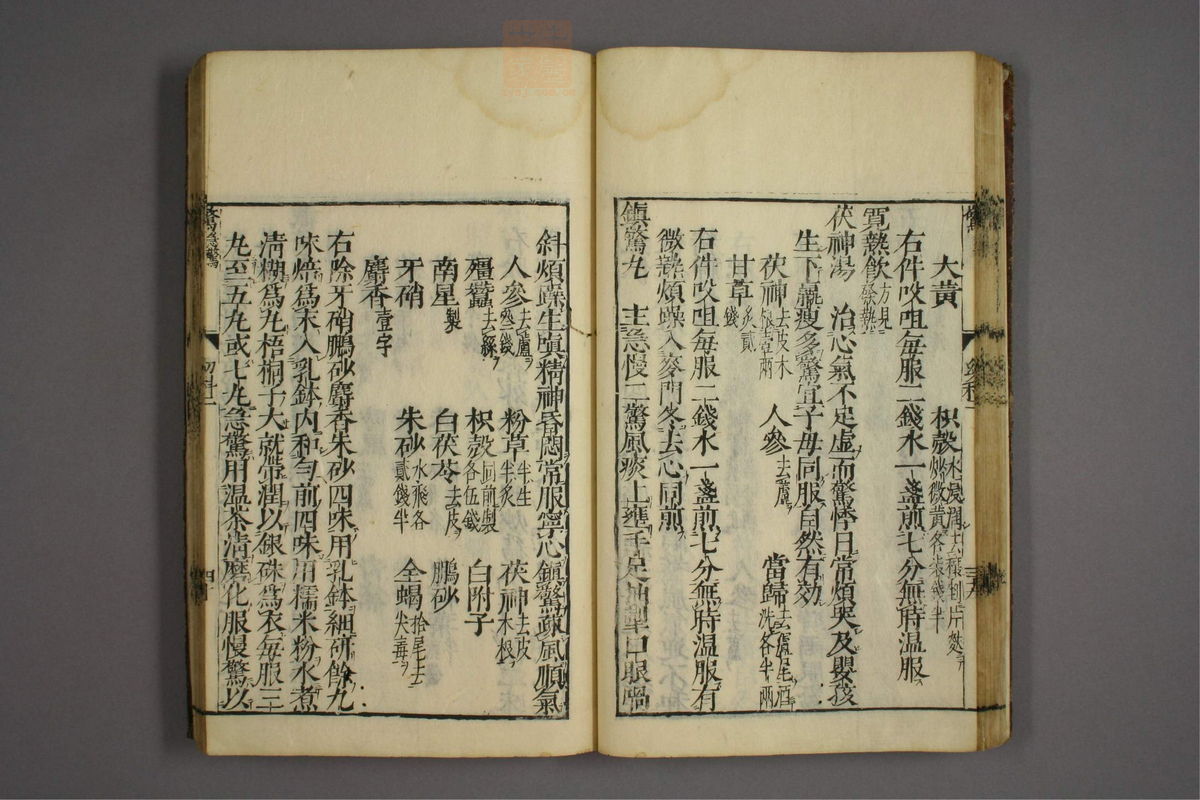 大黃　枳殼水浸潤去穰剉片麩炒微黃各壹錢半
右件㕮咀每服二錢水一盞煎七分無時温服
寬熱飲方見發熱
茯神湯　治心氣不足虛而驚悸日常煩哭及嬰孩
生下羸瘦多驚宜子母同服自然有効
茯神去皮木根壹兩　人參去蘆　當歸去蘆尾酒洗各半兩
甘草炙貳錢
右件㕮咀每服二錢水一盞煎七分無時温服有
微熱煩躁入麥門冬去心同煎
鎮驚丸　主急慢二驚風痰上壅手足抽掣口眼喎
斜煩躁生嗔精神昏悶常服寧心鎮驚疎風順氣
人參去蘆叄錢　粉草半生半炙　茯神去皮木根
殭蠶去絲　枳殼同前製各伍錢　白附子
南星製　白茯苓去皮　鵬砂
牙硝　朱砂水飛各貳錢半　全蝎拾尾去尖毒
麝香壹字
右除牙硝鵬砂麝香朱砂四味用乳鉢細研餘九
味焙爲末入乳鉢内和勻前四味用糯米粉水煮
清糊爲丸梧桐子大就帶潤以銀硃爲衣每服三
丸至五丸或七丸急驚用温茶清磨化服慢驚以
幼科二
四十